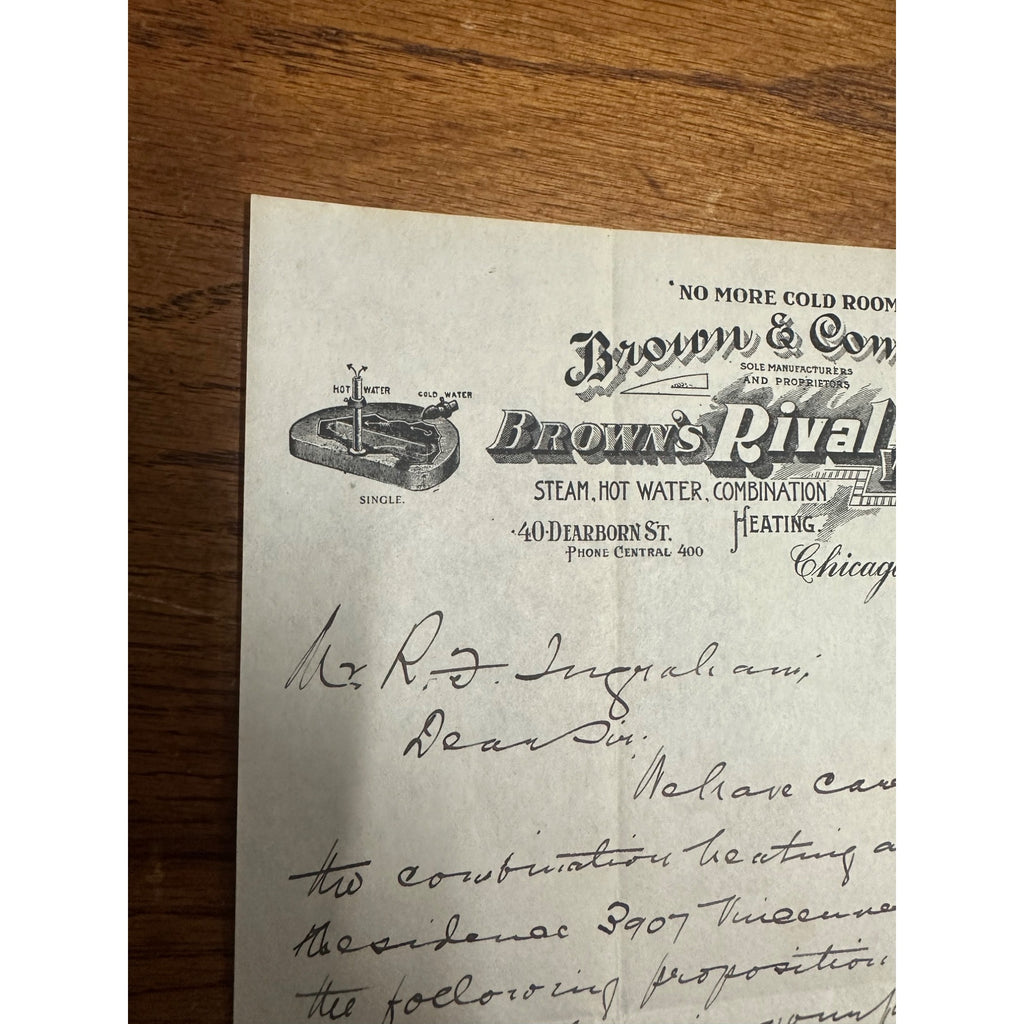 "NO MORE COLD ROOM
Brown & Com
SOLE MANUFACTURERS
AND PROPRIETORS
HOT WATER COLD WATER
BROWN'S Rival
SINGLE.
STEAM, HOT WATER, COMBINATION
HEATING.
·40·DEARBORN ST.
PHONE CENTRAL 400
Chicago
Mr. R. F. Ingraham,
Dear Sir.
We have care
the combination heating a
Residence 3907 Vincenne
the following proposition